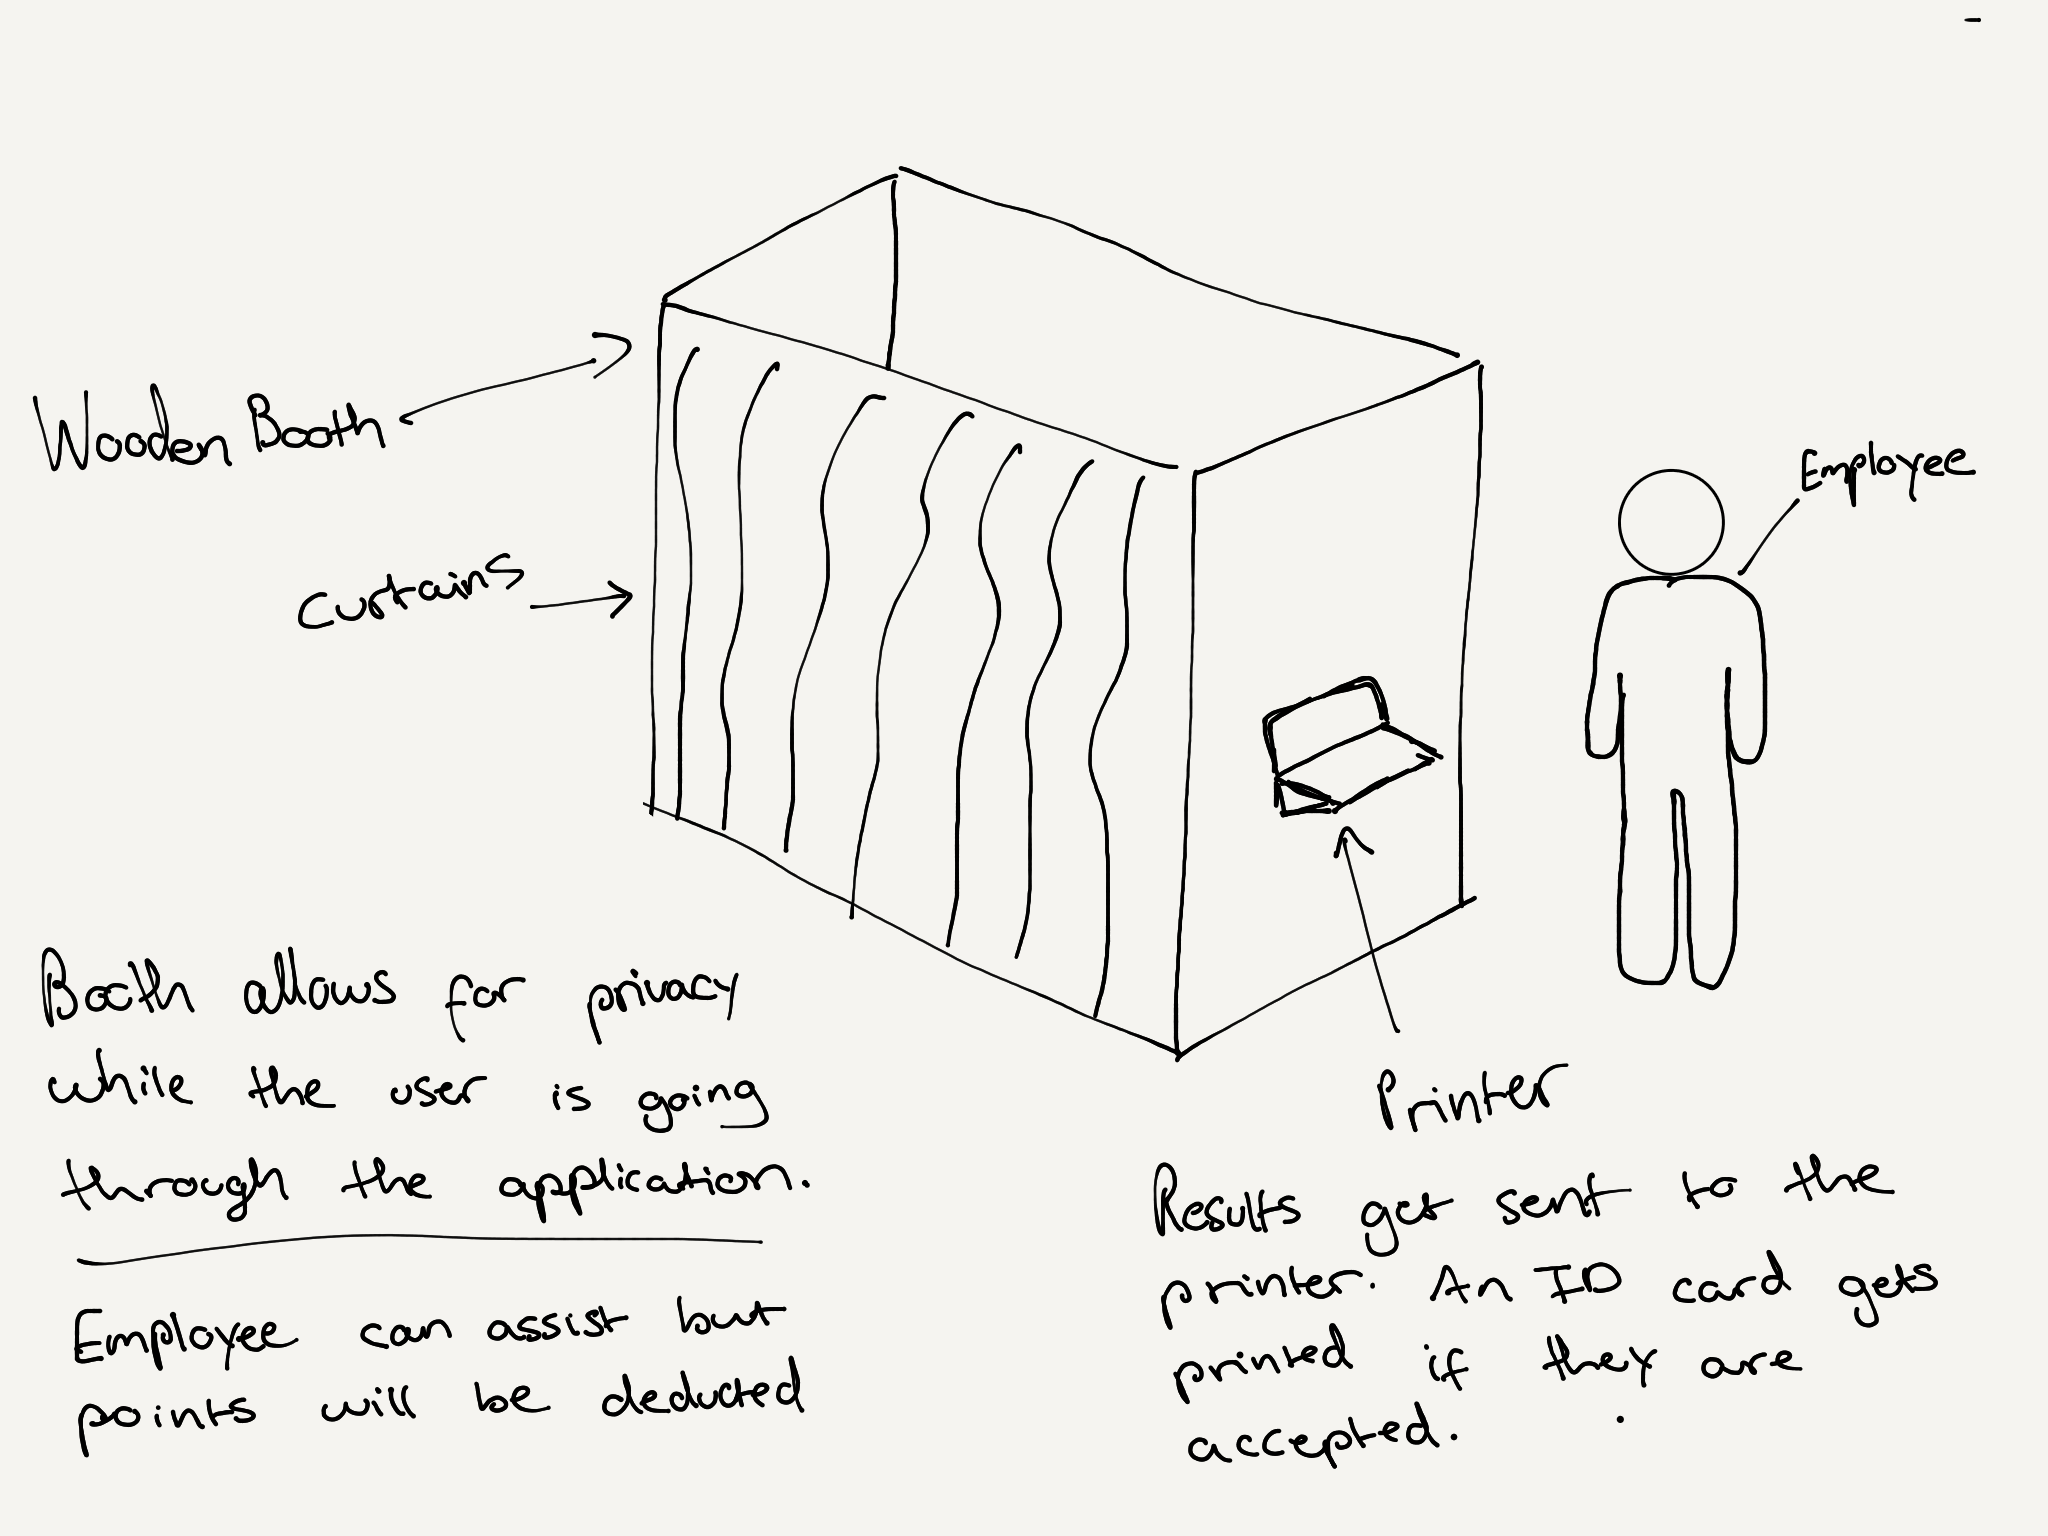 Wooden Booth
Employee
Curtains
Booth allows for privacy
while the user is going
through the application.
Employee can assist but
points will be deducted
Printer
Results get sent to the
printer. An ID card gets
printed if they are
accepted.